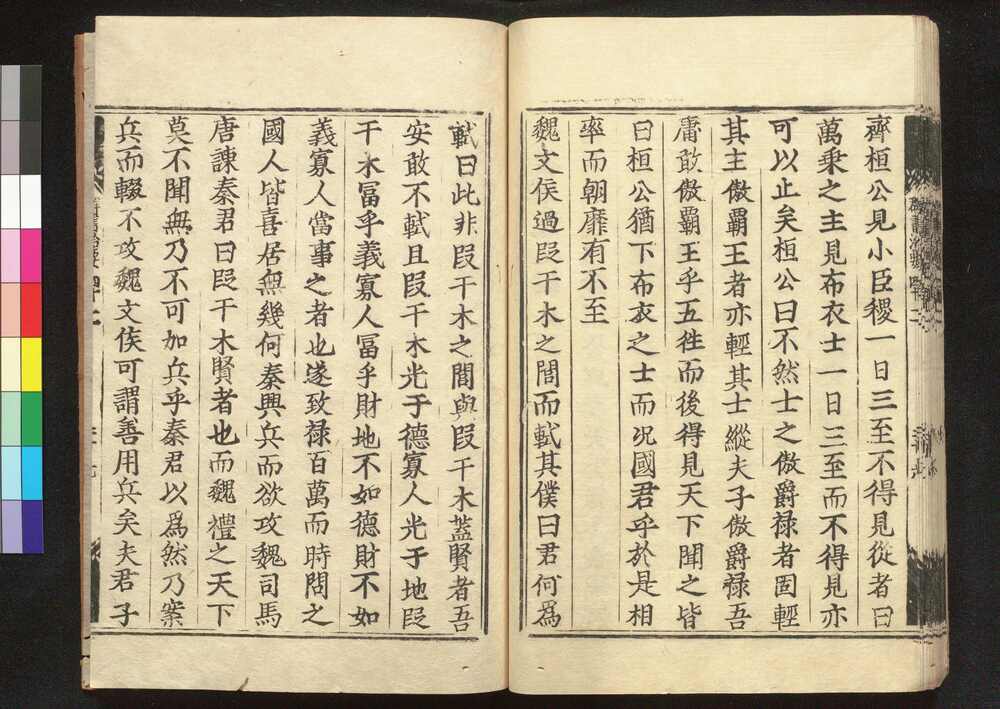 齊桓公見小臣稷一日三至不得見從者曰
萬乘之主見布衣士一日三至而不得見亦
可以止矣桓公曰不然士之傲爵祿者固輕
其主傲霸王者亦輕其士縱夫子傲爵祿吾
庸敢傲霸王乎五徃而後得見天下聞之皆
曰桓公猶下布衣之士而况國君乎於是相
率而朝靡有不至
魏文侯過段干木之閭而軾其僕曰君何爲
軾曰此非段干木之閭與段干木蓋賢者吾
安敢不軾且段干木光于德寡人光于地段
干木冨乎義寡人冨乎財地不如德財不如
義寡人當事之者也遂致禄百萬而時問之
國人皆喜居無幾何秦興兵而欲攻魏司馬
唐諫秦君曰段干木賢者也而魏禮之天下
莫不聞無乃不可加兵乎秦君以爲然乃案
兵而輟不攻魏文侯可謂善用兵矣夫君子